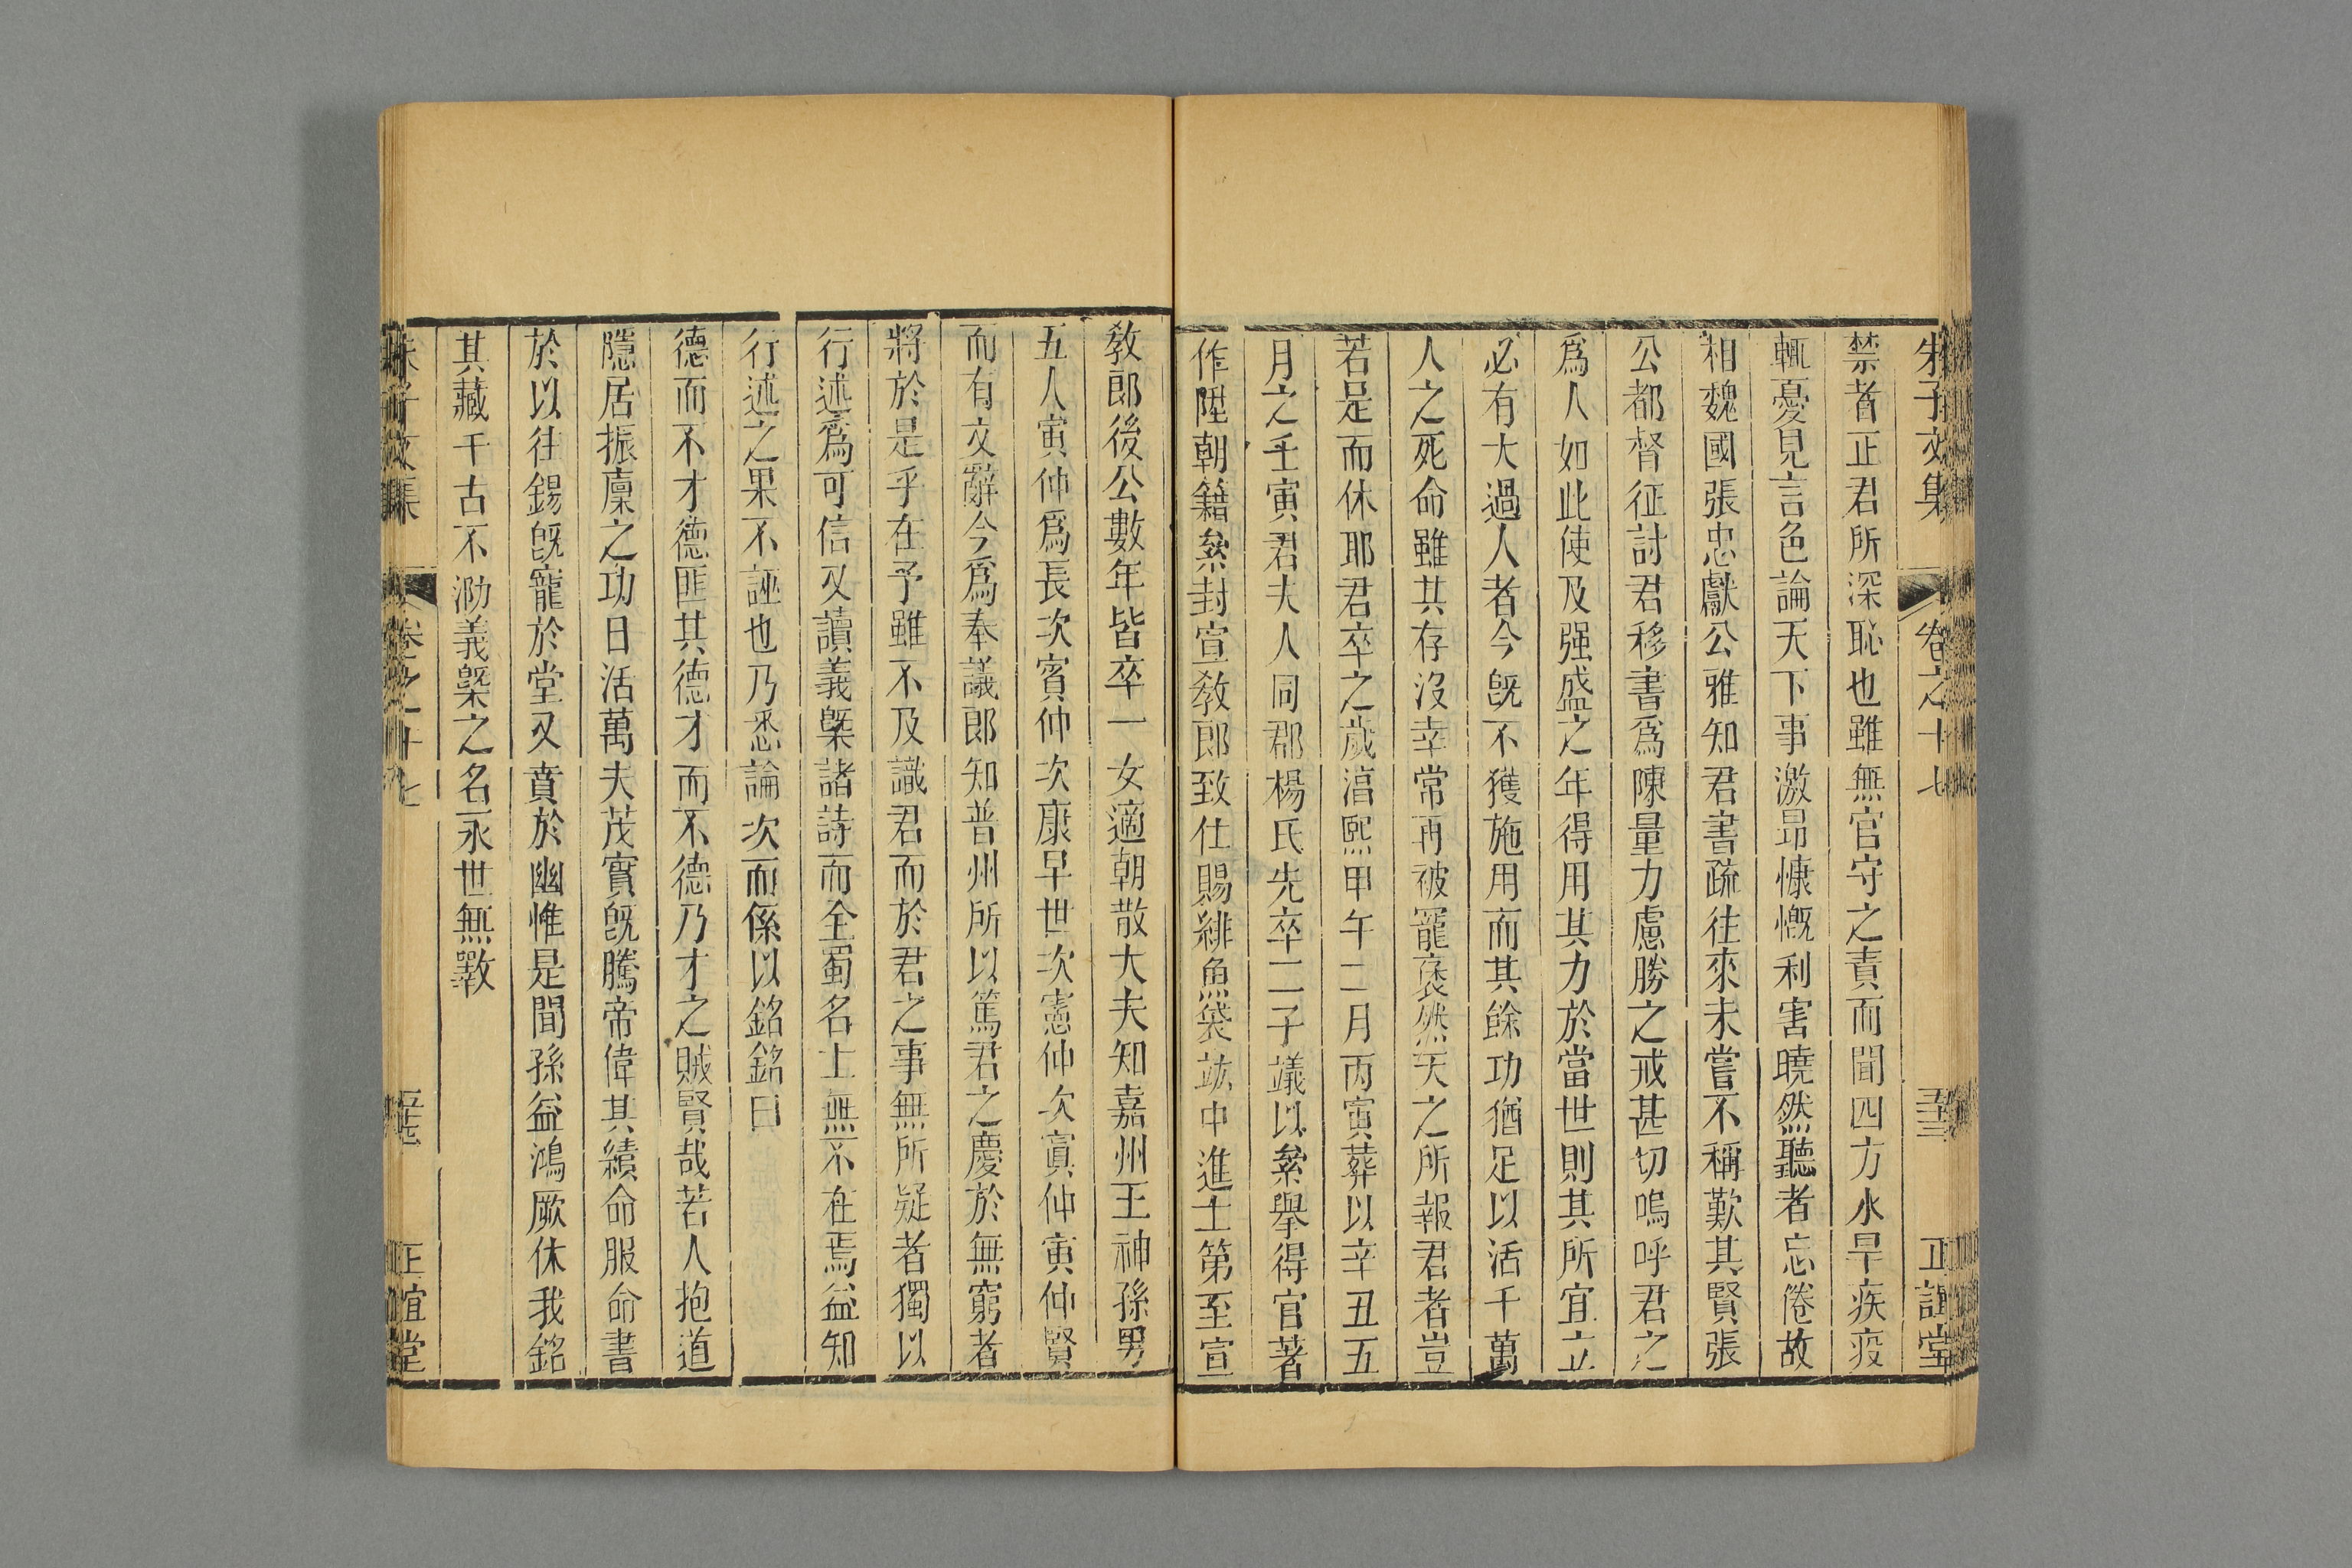 朱子文集 卷之十七 正誼堂
禁者正君所深恥也雖無官守之責而聞四方水旱疾疫
輒憂見言色論天下事激昂慷慨利害曉然聽者忘倦故
相魏國張忠獻公雅知君書疏往來未嘗不稱歎其賢張
公都督征討君移書爲陳量力慮勝之戒甚切嗚呼君之
爲人如此使及强盛之年得用其力於當世則其所宜立
必有大過人者今旣不獲施用而其餘功猶足以活千萬
人之死命雖其存沒幸常再被寵褒然天之所報君者豈
若是而休耶君卒之歲淳熙甲午二月丙寅葬以辛丑五
月之壬寅君夫人同郡楊氏先卒二子議以絫擧得官著
作陞朝籍絫封宣敎郎致仕賜緋魚袋竑中進士第至宣
敎郎後公數年皆卒一女適朝散大夫知嘉州王神孫男
五人寅仲爲長次賓仲次康早世次憲仲次寘仲寅仲賢
而有文辭今爲奉議郎知普州所以篤君之慶於無窮者
將於是乎在予雖不及識君而於君之事無所疑者獨以
行述爲可信又讀義槩諸詩而全蜀名士無不在焉益知
行述之果不誣也乃悉論次而係以銘銘曰
德而不才德匪其德才而不德乃才之賊賢哉若人抱道
隱居振廩之功日活萬夫茂實旣騰帝偉其績命服命書
於以往錫旣寵於堂又賁於幽惟是間孫益鴻厥休我銘
其藏千古不泐義槩之名永世無斁
朱子文集 卷之十七 正誼堂